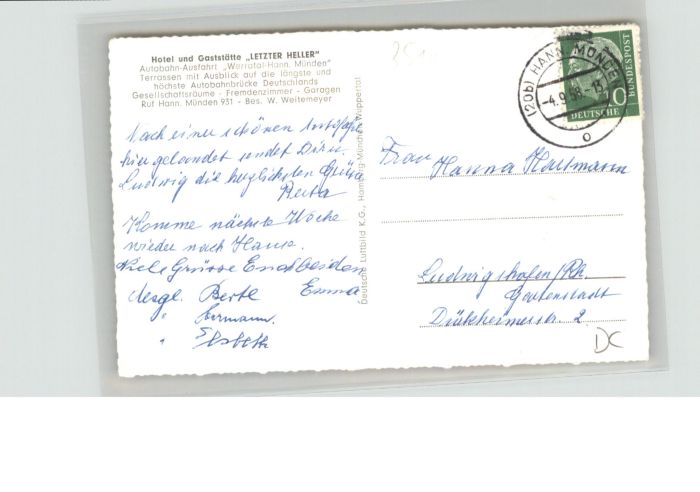 Hotel und Gaststätte „LETZTER HELLER"
Autobahn-Ausfahrt „Werratal-Hann. Münden"
Terrassen mit Ausblick auf die längste und
höchste Autobahnbrücke Deutschlands
Gesellschaftsräume - Fremdenzimmer - Garagen
Ruf Hann. Münden 931 - Bes. W. Weitemeyer
Nach einer schönen Autofahrt
hier gelandet sendet Dir u.
Ludwig die herzlichsten Grüße
Berta
Komme nächste Woche
wieder nach Hause.
Viele Grüsse Euch beiden
desgl. Bertl Emma
" Hermann.
" Elsbeth
Deutsche Luftbild K.G., Hamburg-München-Wuppertal
(20b) HANN. MÜNDEN
-4.9.58.-15
o
DEUTSCHE
BUNDESPOST
10
Frau Hanna
Ludwigshafen/Rh.
Gartenstadt
Dürkheimerstr. 2
DC